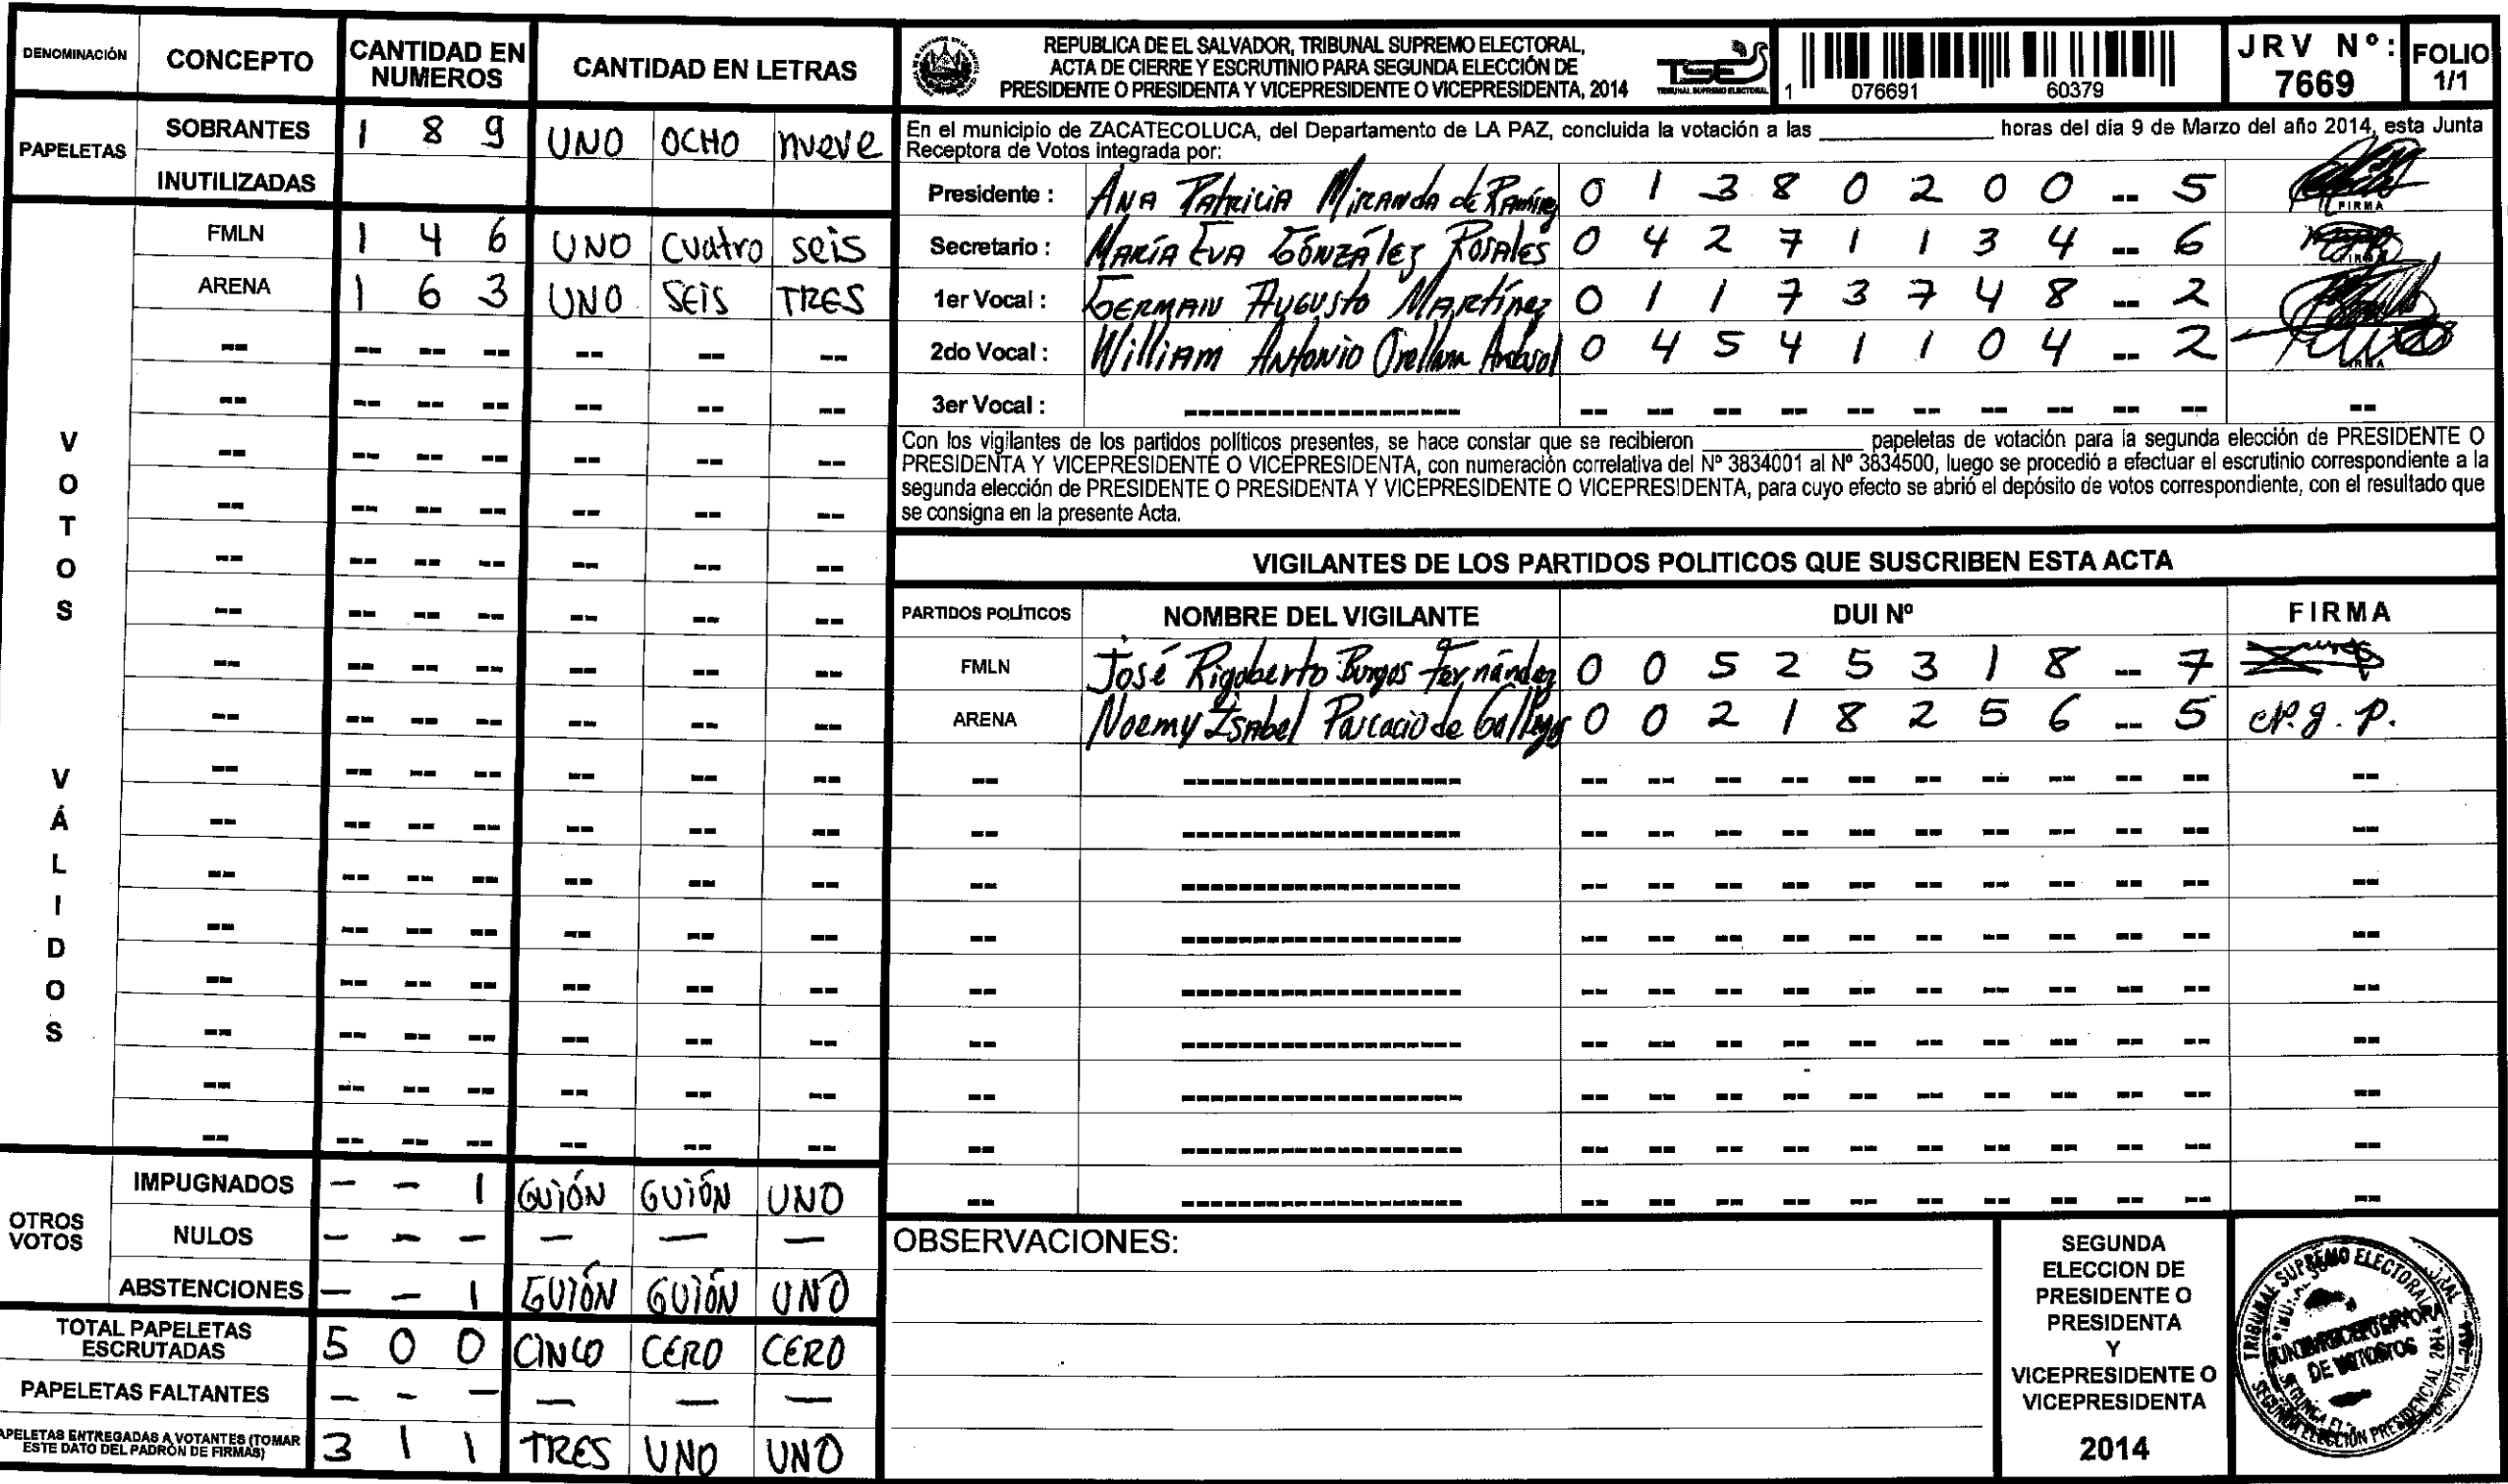 DENOMINACIÓN CONCEPTO CANTIDAD EN NUMEROS CANTIDAD EN LETRAS
PAPELETAS
SOBRANTES 1 8 9 UNO OCHO nueve
INUTILIZADAS
VOTOS VÁLIDOS
FMLN 1 4 6 UNO Cuatro seis
ARENA 1 6 3 UNO SEIS TRES
OTROS VOTOS
IMPUGNADOS - - 1 GUIÓN GUIÓN UNO
NULOS - - - - - -
ABSTENCIONES - - 1 GUIÓN GUIÓN UNO
TOTAL PAPELETAS ESCRUTADAS 5 0 0 CINCO CERO CERO
PAPELETAS FALTANTES - - - - - -
APELETAS ENTREGADAS A VOTANTES (TOMAR ESTE DATO DEL PADRÓN DE FIRMAS) 3 1 1 TRES UNO UNO
REPUBLICA DE EL SALVADOR, TRIBUNAL SUPREMO ELECTORAL,
ACTA DE CIERRE Y ESCRUTINIO PARA SEGUNDA ELECCIÓN DE
PRESIDENTE O PRESIDENTA Y VICEPRESIDENTE O VICEPRESIDENTA, 2014
TSE
TRIBUNAL SUPREMO ELECTORAL
1 076691 60379
JRV Nº: 7669
FOLIO 1/1
En el municipio de ZACATECOLUCA, del Departamento de LA PAZ, concluida la votación a las ____________ horas del día 9 de Marzo del año 2014, esta Junta
Receptora de Votos integrada por:
Presidente : ANA PATRICIA MIRANDA de Ramírez 0 1 3 8 0 2 0 0 -- 5 FIRMA
Secretario : MARÍA EVA GONZÁLEZ ROSALES 0 4 2 7 1 1 3 4 -- 6 FIRMA
1er Vocal : GERMAN AUGUSTO MARTÍNEZ 0 1 1 7 3 7 4 8 -- 2
2do Vocal : WILLIAM ANTONIO Orellana 0 4 5 4 1 1 0 4 -- 2 FIRMA
3er Vocal :
Con los vigilantes de los partidos políticos presentes, se hace constar que se recibieron ____________ papeletas de votación para la segunda elección de PRESIDENTE O
PRESIDENTA Y VICEPRESIDENTE O VICEPRESIDENTA, con numeración correlativa del Nº 3834001 al Nº 3834500, luego se procedió a efectuar el escrutinio correspondiente a la
segunda elección de PRESIDENTE O PRESIDENTA Y VICEPRESIDENTE O VICEPRESIDENTA, para cuyo efecto se abrió el depósito de votos correspondiente, con el resultado que
se consigna en la presente Acta.
VIGILANTES DE LOS PARTIDOS POLITICOS QUE SUSCRIBEN ESTA ACTA
PARTIDOS POLÍTICOS NOMBRE DEL VIGILANTE DUI Nº FIRMA
FMLN José Rigoberto Burgos Fernández 0 0 5 2 5 3 1 8 -- 7
ARENA Noemy Isabel Parcacio de Gallegos 0 0 2 1 8 2 5 6 -- 5 N.g.P.
OBSERVACIONES:
SEGUNDA
ELECCION DE
PRESIDENTE O
PRESIDENTA
Y
VICEPRESIDENTE O
VICEPRESIDENTA
2014
TRIBUNAL SUPREMO ELECTORAL
JUNTA RECEPTORA
DE VOTOS
SEGUNDA ELECCIÓN PRESIDENCIAL 2014